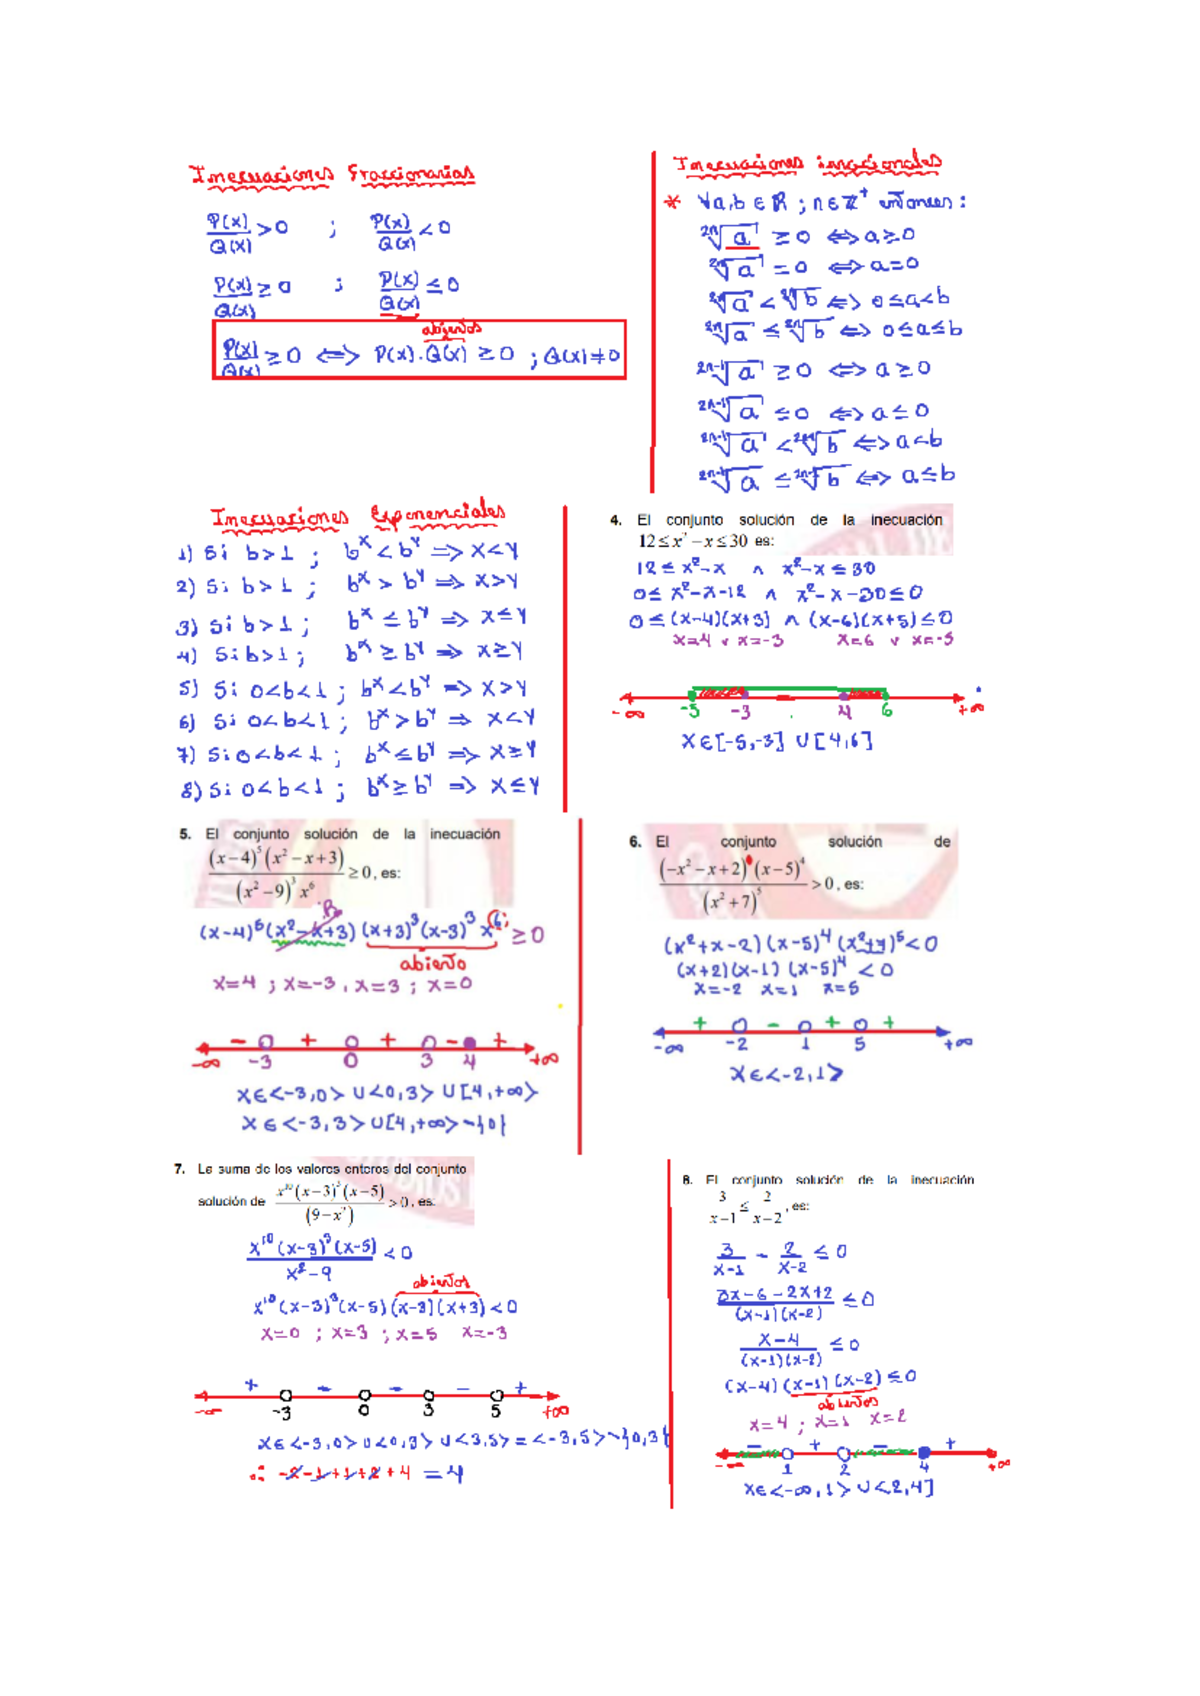 Inecuaciones Fraccionarias
P(x)/Q(x) > 0 ; P(x)/Q(x) < 0
P(x)/Q(x) ≥ 0 ; P(x)/Q(x) ≤ 0
abiertos
P(x)/Q(x) ≥ 0 ⟺ P(x).Q(x) ≥ 0 ; Q(x) ≠ 0
Inecuaciones irracionales
* ∀a,b ∈ ℝ ; n ∈ ℤ⁺ entonces :
²ⁿ√a ≥ 0 ⟺ a ≥ 0
²ⁿ√a = 0 ⟺ a = 0
²ⁿ√a < ²ⁿ√b ⟺ 0 ≤ a < b
²ⁿ√a ≤ ²ⁿ√b ⟺ 0 ≤ a ≤ b
²ⁿ⁻¹√a ≥ 0 ⟺ a ≥ 0
²ⁿ⁻¹√a ≤ 0 ⟺ a ≤ 0
²ⁿ⁻¹√a < ²ⁿ⁻¹√b ⟺ a < b
²ⁿ⁻¹√a ≤ ²ⁿ⁻¹√b ⟺ a ≤ b
Inecuaciones Exponenciales
1) Si b>1 ; bˣ < bʸ ⟹ x<y
2) Si b>1 ; bˣ > bʸ ⟹ x>y
3) Si b>1 ; bˣ ≤ bʸ ⟹ x≤y
4) Si b>1 ; bˣ ≥ bʸ ⟹ x≥y
5) Si 0<b<1 ; bˣ < bʸ ⟹ x>y
6) Si 0<b<1 ; bˣ > bʸ ⟹ x<y
7) Si 0<b<1 ; bˣ ≤ bʸ ⟹ x≥y
8) Si 0<b<1 ; bˣ ≥ bʸ ⟹ x≤y
4. El conjunto solución de la inecuación
12 ≤ x² − x ≤ 30 es:
12 ≤ x²−x ∧ x²−x ≤ 30
0 ≤ x²−x−12 ∧ x²−x−30 ≤ 0
0 ≤ (x−4)(x+3) ∧ (x−6)(x+5) ≤ 0
x=4 ∨ x=−3 x=6 ∨ x=−5
−∞ −5 −3 4 6 +∞
x∈[−5,−3] ∪ [4,6]
5. El conjunto solución de la inecuación
(x−4)⁵(x²−x+3)/((x²−9)³x⁶) ≥ 0, es:
(x−4)⁵(x²−x+3)(x+3)³(x−3)³x⁶ ≥ 0
abierto
x=4 ; x=−3 , x=3 ; x=0
− + + − +
−∞ −3 0 3 4 +∞
x∈<−3,0> ∪ <0,3> ∪ [4,+∞>
x∈<−3,3> ∪ [4,+∞> −{0}
6. El conjunto solución de
(−x²−x+2)(x−5)⁴/(x²+7)⁵ > 0, es:
(x²+x−2)(x−5)⁴(x²+7)⁵<0
(x+2)(x−1)(x−5)⁴ < 0
x=−2 x=1 x=5
+ − + +
−∞ −2 1 5 +∞
x∈<−2,1>
7. La suma de los valores enteros del conjunto
solución de x¹⁰(x−3)³(x−5)/(9−x²) > 0, es:
x¹⁰(x−3)³(x−5)/(x²−9) < 0
abiertos
x¹⁰(x−3)³(x−5)(x−3)(x+3)<0
x=0 ; x=3 ; x=5 x=−3
+ − − − +
−∞ −3 0 3 5 +∞
x∈<−3,0> ∪ <0,3> ∪ <3,5> = <−3,5> −{0,3}
∴ −2−1+1+2+4 = 4
8. El conjunto solución de la inecuación
3/(x−1) ≤ 2/(x−2), es:
3/(x−1) − 2/(x−2) ≤ 0
(3x−6−2x+2)/((x−1)(x−2)) ≤ 0
(x−4)/((x−1)(x−2)) ≤ 0
(x−4)(x−1)(x−2) ≤ 0
abiertos
x=4 ; x=1 x=2
− + − +
−∞ 1 2 4 +∞
x∈<−∞,1> ∪ <2,4]